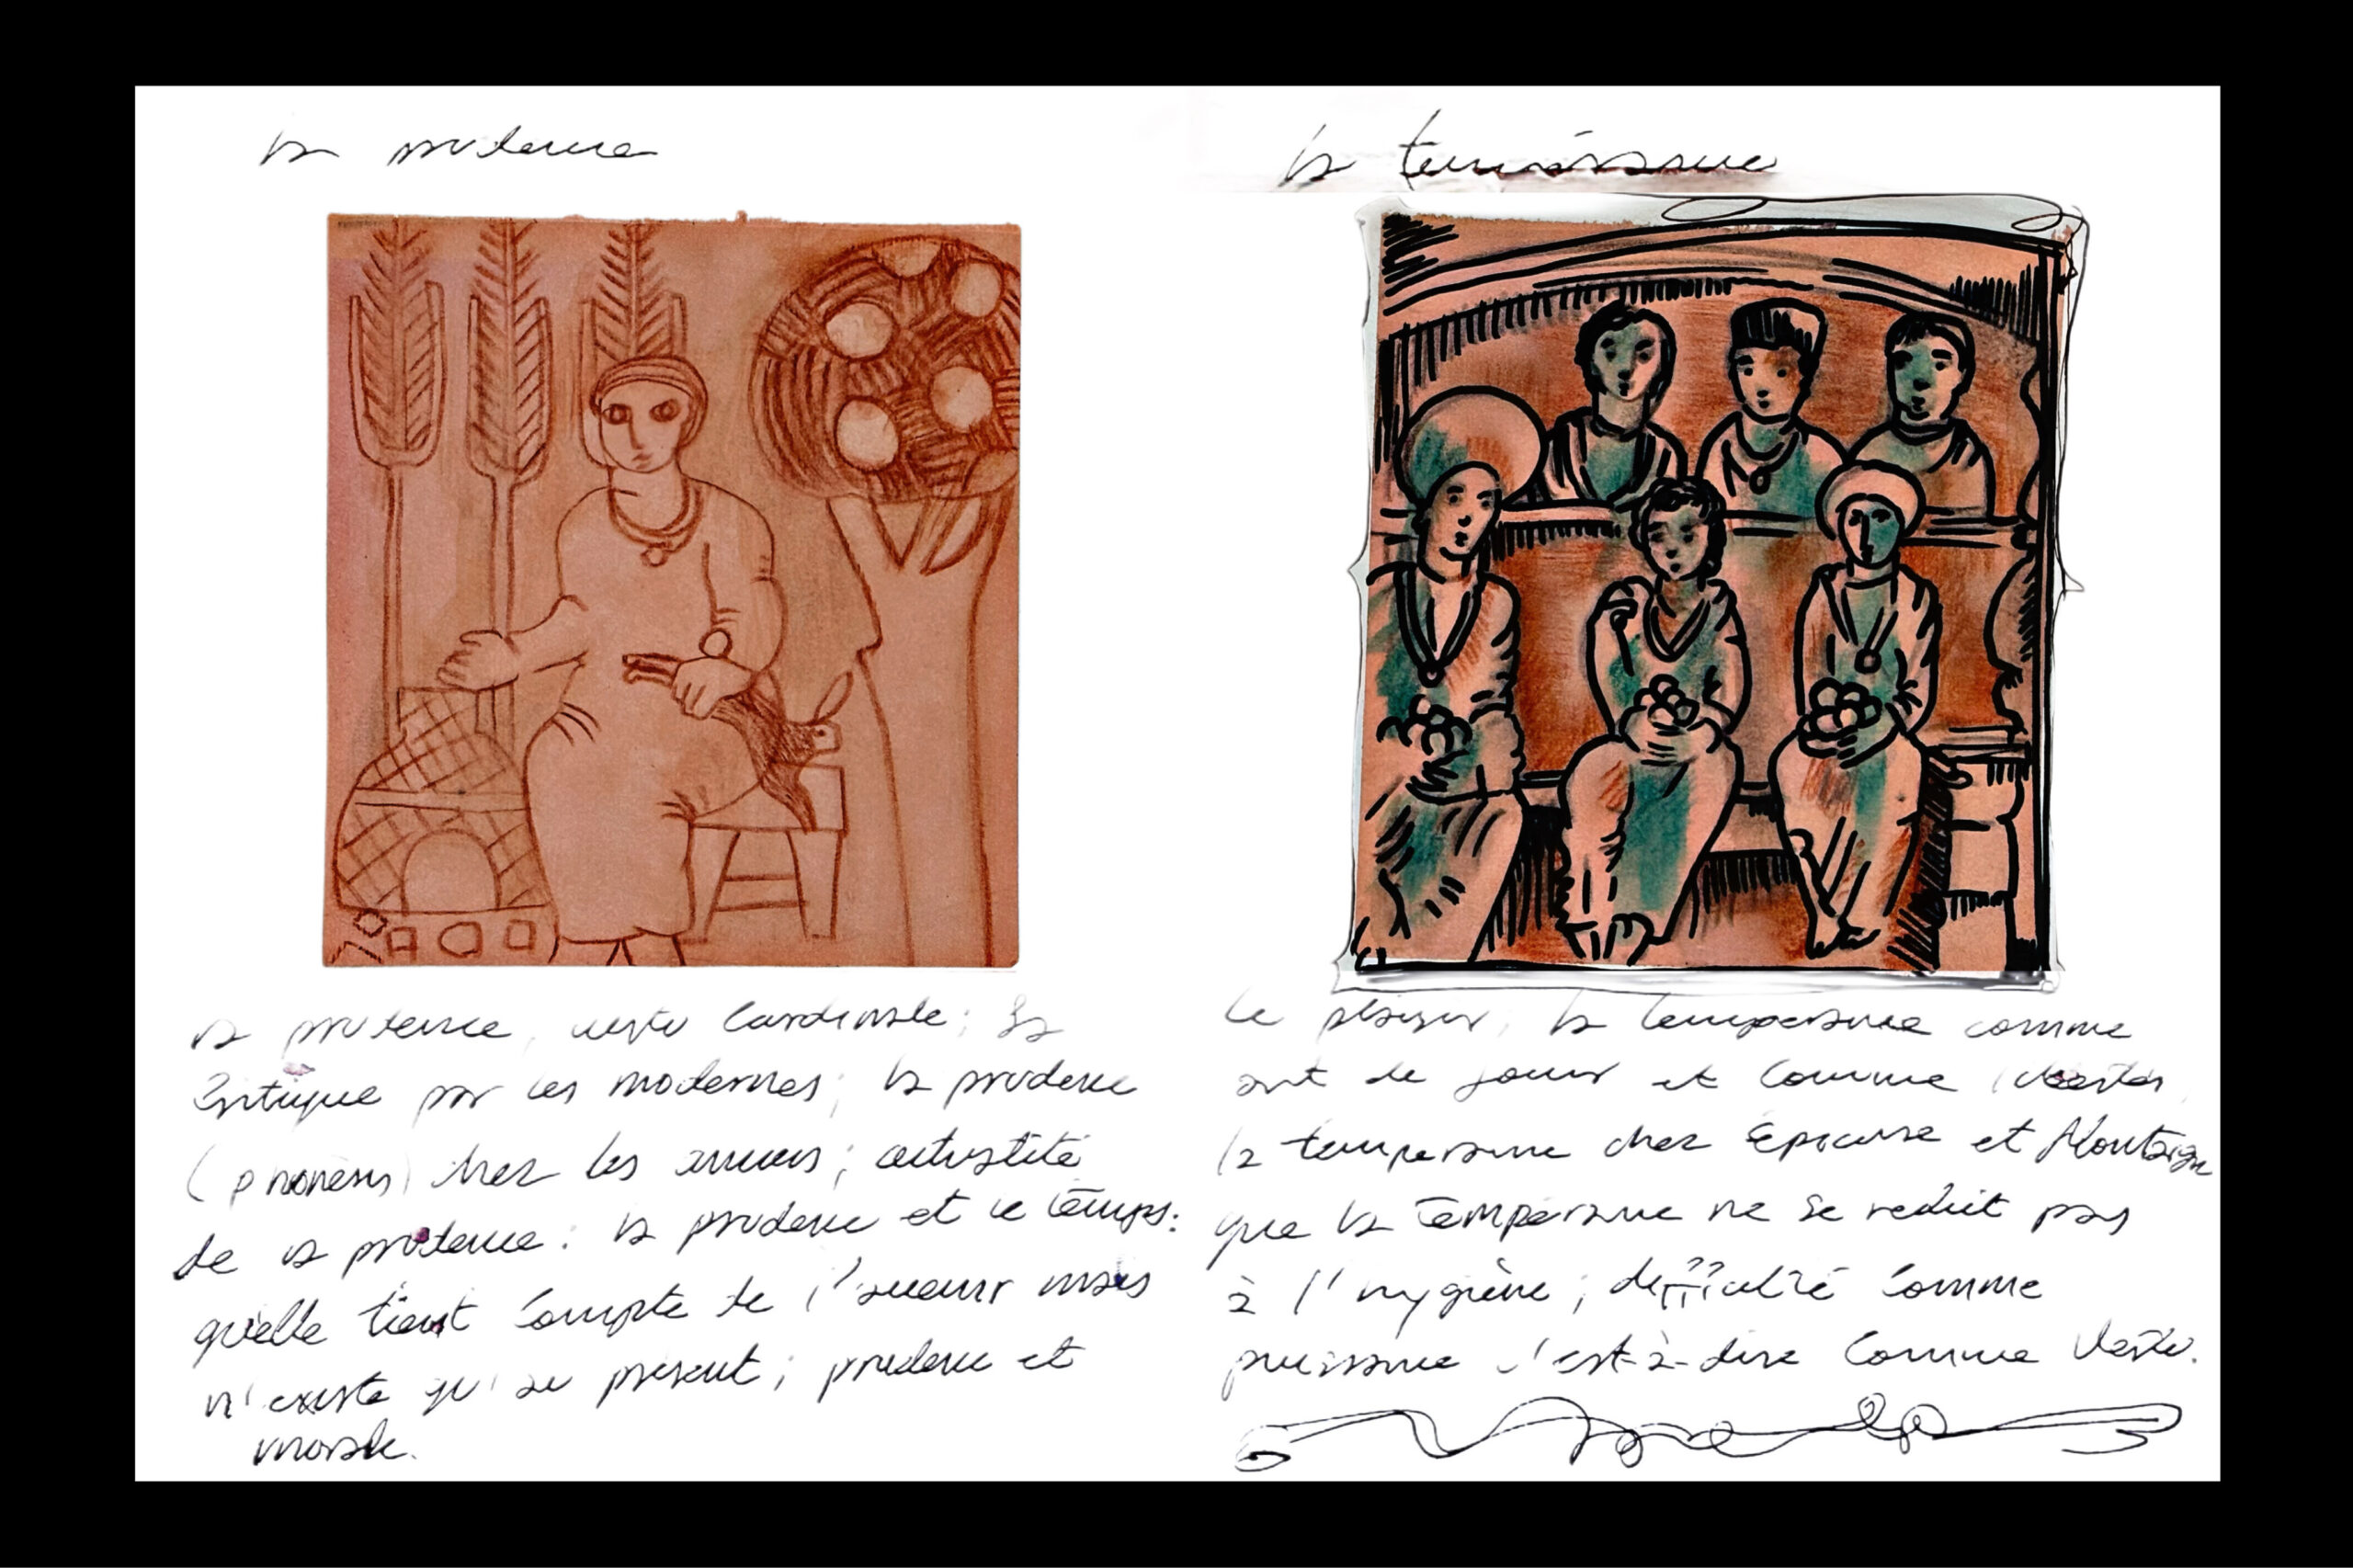 la prudence
la prudence, vertu cardinale ; sa
critique par les modernes ; la prudence
(phronèsis) chez les anciens ; actualité
de la prudence : la prudence et le temps :
qu'elle tient compte de l'avenir mais
n'existe qu'au présent ; prudence et
morale.
la tempérance
Le plaisir ; la temperance comme
art de jouir et comme liberté,
la temperance chez Épicure et Montaigne
que la tempérance ne se reduit pas
à l'hygiène ; difficulté comme
puissance c'est-à-dire comme vertu.